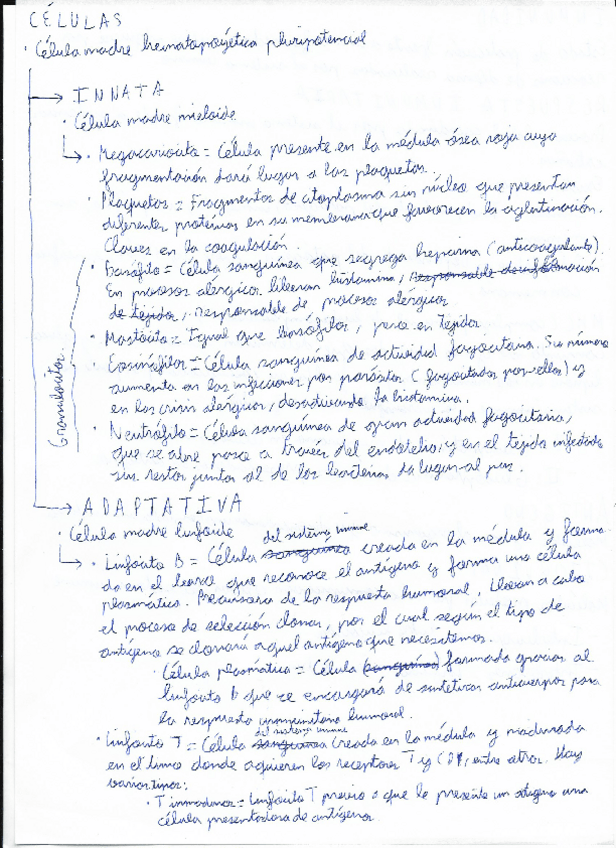 CÉLULAS
· Célula madre hematopoyética pluripotencial
→ INNATA
· Célula madre mieloide
↳ · Megacariocito = Célula presente en la médula ósea roja cuya
fragmentación dará lugar a las plaquetas.
· Plaquetas = Fragmentos de citoplasma sin núcleo que presentan
diferentes proteínas en su membrana que favorecen la aglutinación.
Claves en la coagulación.
Granulocitos
· Basófilo = Célula sanguínea que segrega heparina (anticoagulante).
En procesos alérgicos liberan histamina, responsable de
de tejidos, responsable de procesos alérgicos
· Mastocito = Igual que basófilos, pero en tejidos
· Eosinófilos = Célula sanguínea de actividad fagocitaria. Su número
aumenta en las infecciones por parásitos (fagocitados por ellos) y
en las crisis alérgicas, desactivando la histamina.
· Neutrófilo = Célula sanguínea de gran actividad fagocitaria,
que se abre paso a través del endotelio, y en el tejido infectado
sus restos juntos al de las bacterias da lugar al pus.
→ ADAPTATIVA
· Célula madre linfoide
del sistema inmune
↳ · Linfocito B = Célula sanguínea creada en la médula y forma
da en el que reconoce el antígeno y forma una célula
plasmática. Precursora de la respuesta humoral, llevan a cabo
el proceso de selección clonar, por el cual según el tipo de
antígeno se clonará aquel antígeno que necesitemos.
· Célula plasmática = Célula (sanguínea) formada gracias al
linfocito B que se encargará de sintetizar anticuerpos para
la respuesta humoral.
del sistema inmune
· Linfocito T = Célula sanguínea creada en la médula y madurada
en el timo donde adquieren los receptores T y CD4, entre otros. Hay
varios tipos:
· T inmaduros = Linfocito T previo a que le presente un antígeno una
célula presentadora de antígenos.